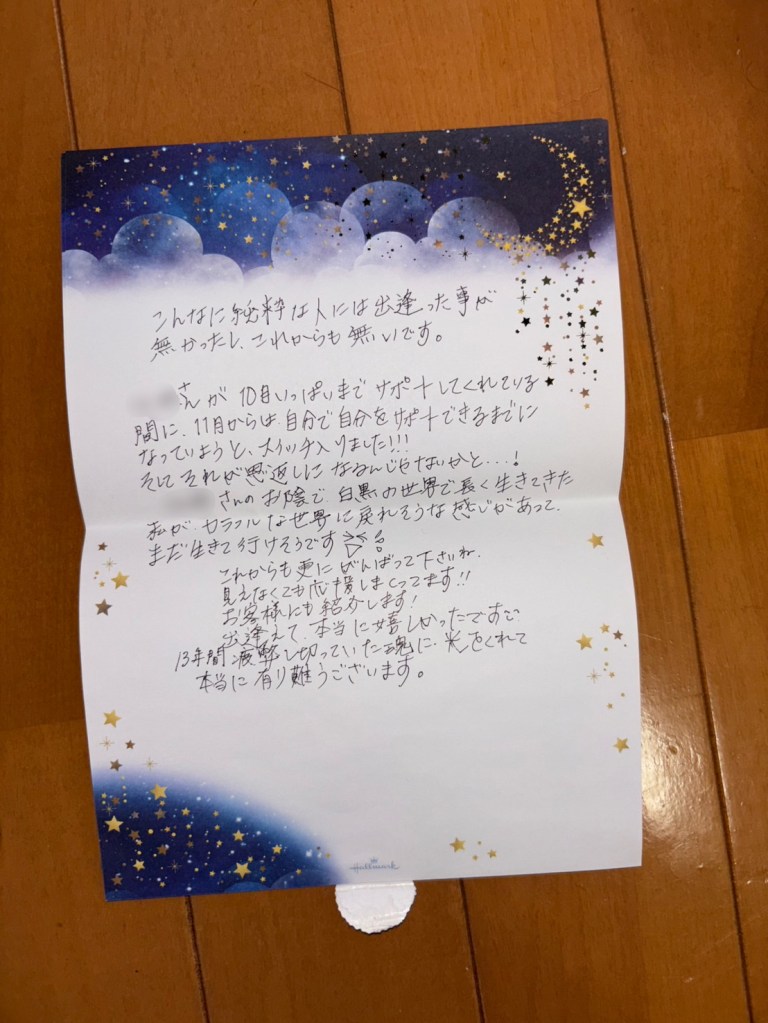 こんなに純粋な人には出逢った事が
無かったし、これからも無いです。
さんが 10月いっぱいまで サポートしてくれている
間に、11月からは 自分で自分を サポートできるまでに
なっていようと、スイッチ入りました!!!
そして それが恩返しに なるんじゃないかと…!
さんの お陰で、白黒の世界で長く生きてきた
私が、カラフルな世界に戻れそうな 感じがあって、
まだ生きて行けそうです
これからも更にがんばって下さいね、
見えなくても応援しまくってます!!
お客様にも紹介します!
出逢えて、本当に嬉しかったですで
13年間 疲弊し切っていた魂に、光をくれて
本当に有り難うございます。
Hallmark